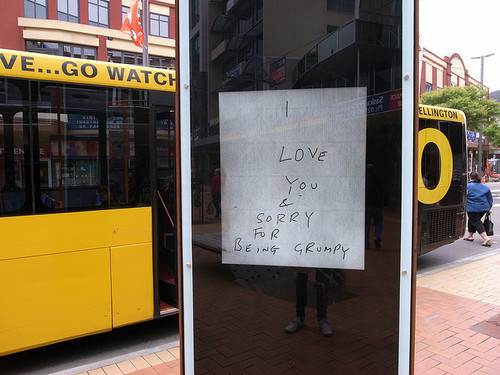 VE...GO WATCH
ELLINGTON
O
I
LOVE
YOU
&
SORRY
FOR
BEING GRUMPY